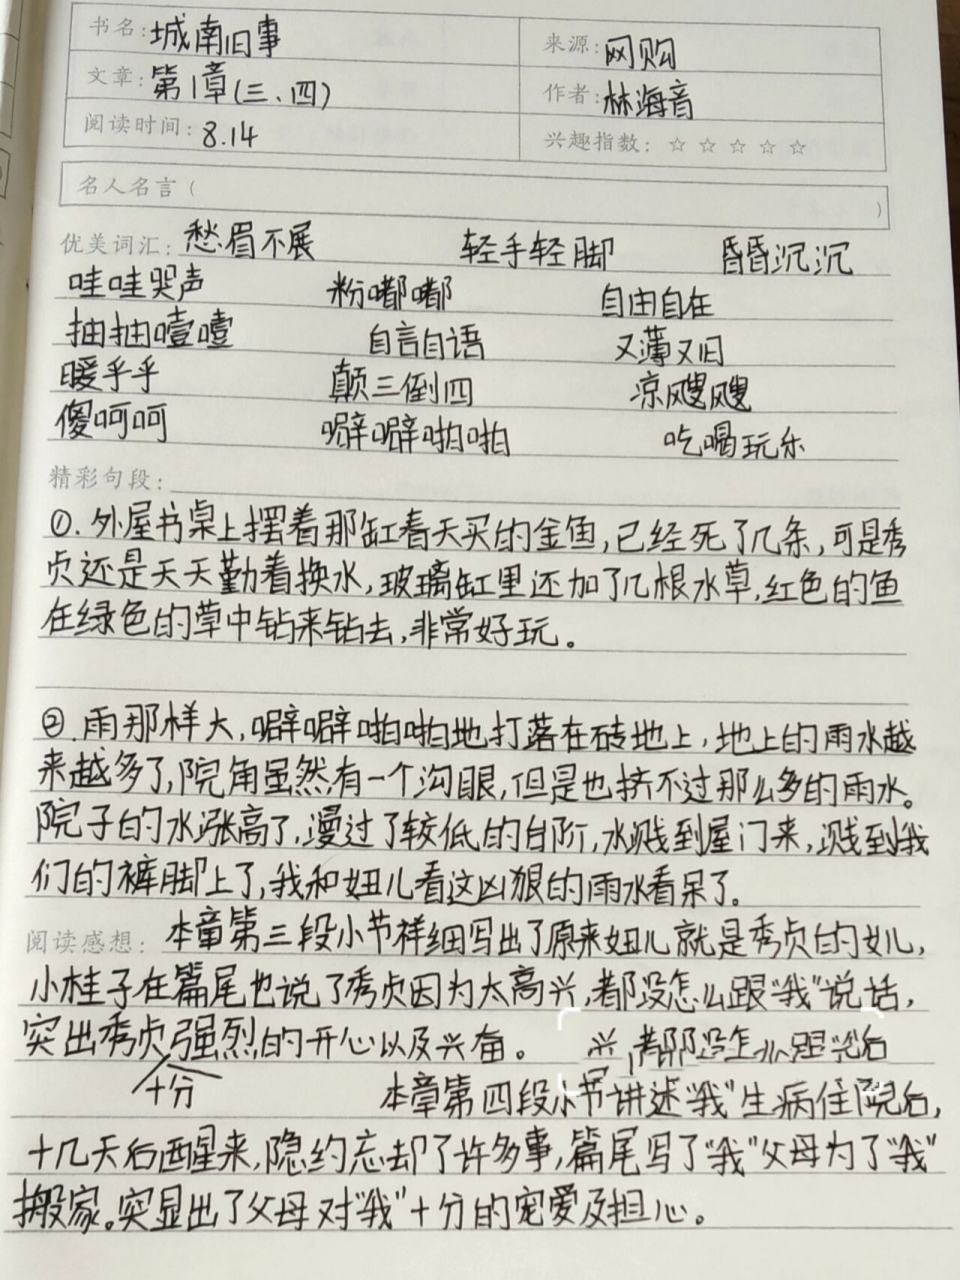 书名: 城南旧事
来源: 网购
文章: 第1章(三、四)
作者: 林海音
阅读时间: 8.14
兴趣指数: ☆ ☆ ☆ ☆ ☆
名人名言 ( )
优美词汇: 愁眉不展 轻手轻脚 昏昏沉沉
哇哇哭声 粉嘟嘟 自由自在
抽抽噎噎 自言自语 又薄又旧
暖乎乎 颠三倒四 凉飕飕
傻呵呵 噼噼啪啪 吃喝玩乐
精彩句段:
①. 外屋书桌上摆着那缸春天买的金鱼,已经死了几条,可是秀
贞还是天天勤着换水,玻璃缸里还加了几根水草,红色的鱼
在绿色的草中钻来钻去,非常好玩。
②. 雨那样大,噼噼啪啪地打落在砖地上,地上的雨水越
来越多了,院角虽然有一个沟眼,但是也挤不过那么多的雨水。
院子的水涨高了,漫过了较低的台阶,水溅到屋门来,溅到我
们的裤脚上了,我和妞儿看这凶狠的雨水看呆了。
阅读感想: 本章第三段小节祥细写出了原来妞儿就是秀贞的女儿,
小桂子在篇尾也说了秀贞因为太高兴,都没怎么跟“我”说话,
突出秀贞强烈的开心以及兴奋。
十分
本章第四段小节讲述“我”生病住院后,
十几天后醒来,隐约忘却了许多事,篇尾写了“我”父母为了“我”
搬家。突显出了父母对“我”十分的宠爱及担心。